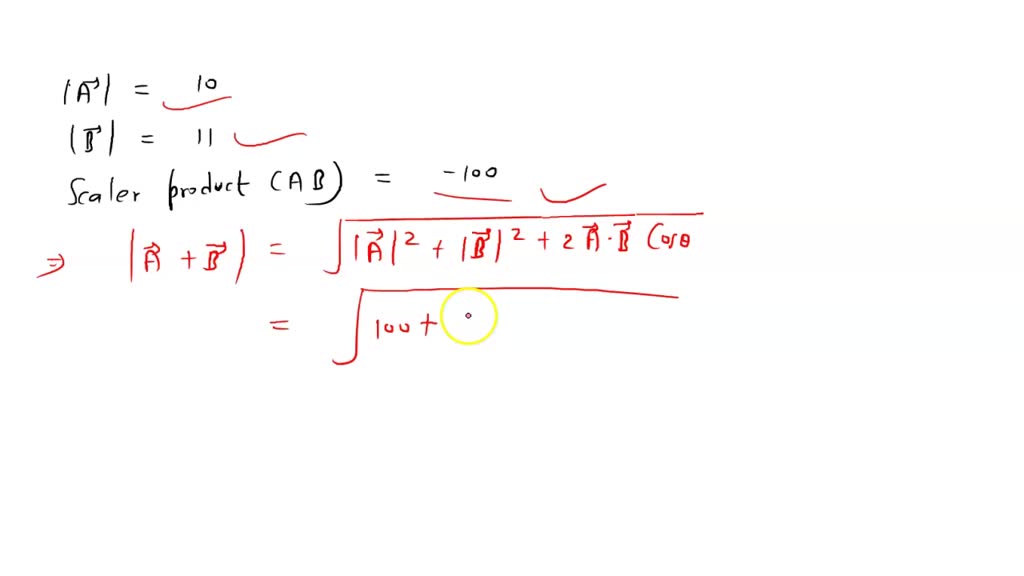 |A⃗| = 10
|B⃗| = 11
Scaler product (AB) = -100
⇒ |A⃗ + B⃗| = √|A⃗|² + |B⃗|² + 2 A⃗ · B⃗ Cosθ
= √100 +